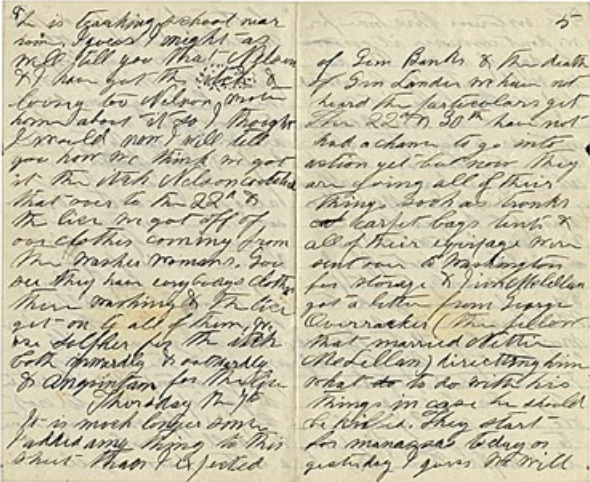 is teaching school near
home I guess I might as
well tell you that Nelson
& I have got the itch &
lousy too Nelson wrote
home about it so I thought
I would now I will tell
you how we think we got
it the itch Nelson
that over to the 22d &
the lice we got off of
our clothes comming from
the washer womans. You
see they have everybodys clothes
there washing & the lice
get on to all of them, we
use sulpher for the itch
both inwardly & outwardly
& anguintum for the lice
Thursday the 7th
It is much longer since
I added any thing to this
sheet than I expected
5
of Gen Banks & the death
of Gen Lander we have not
heard the particulars yet
The 22d & 30th have not
had a chance to go into
action yet but now they
are going all of their
things such as trunks
carpet bags tents &
all of their equipage were
sent over to Washington
for storage & McLellan
got a letter from George
Overracker (the fellow
that married Mettie
McLellan) directing him
what to do with his
things in case he should
be killed. They start
for manassas to day or
yesterday I guess We will